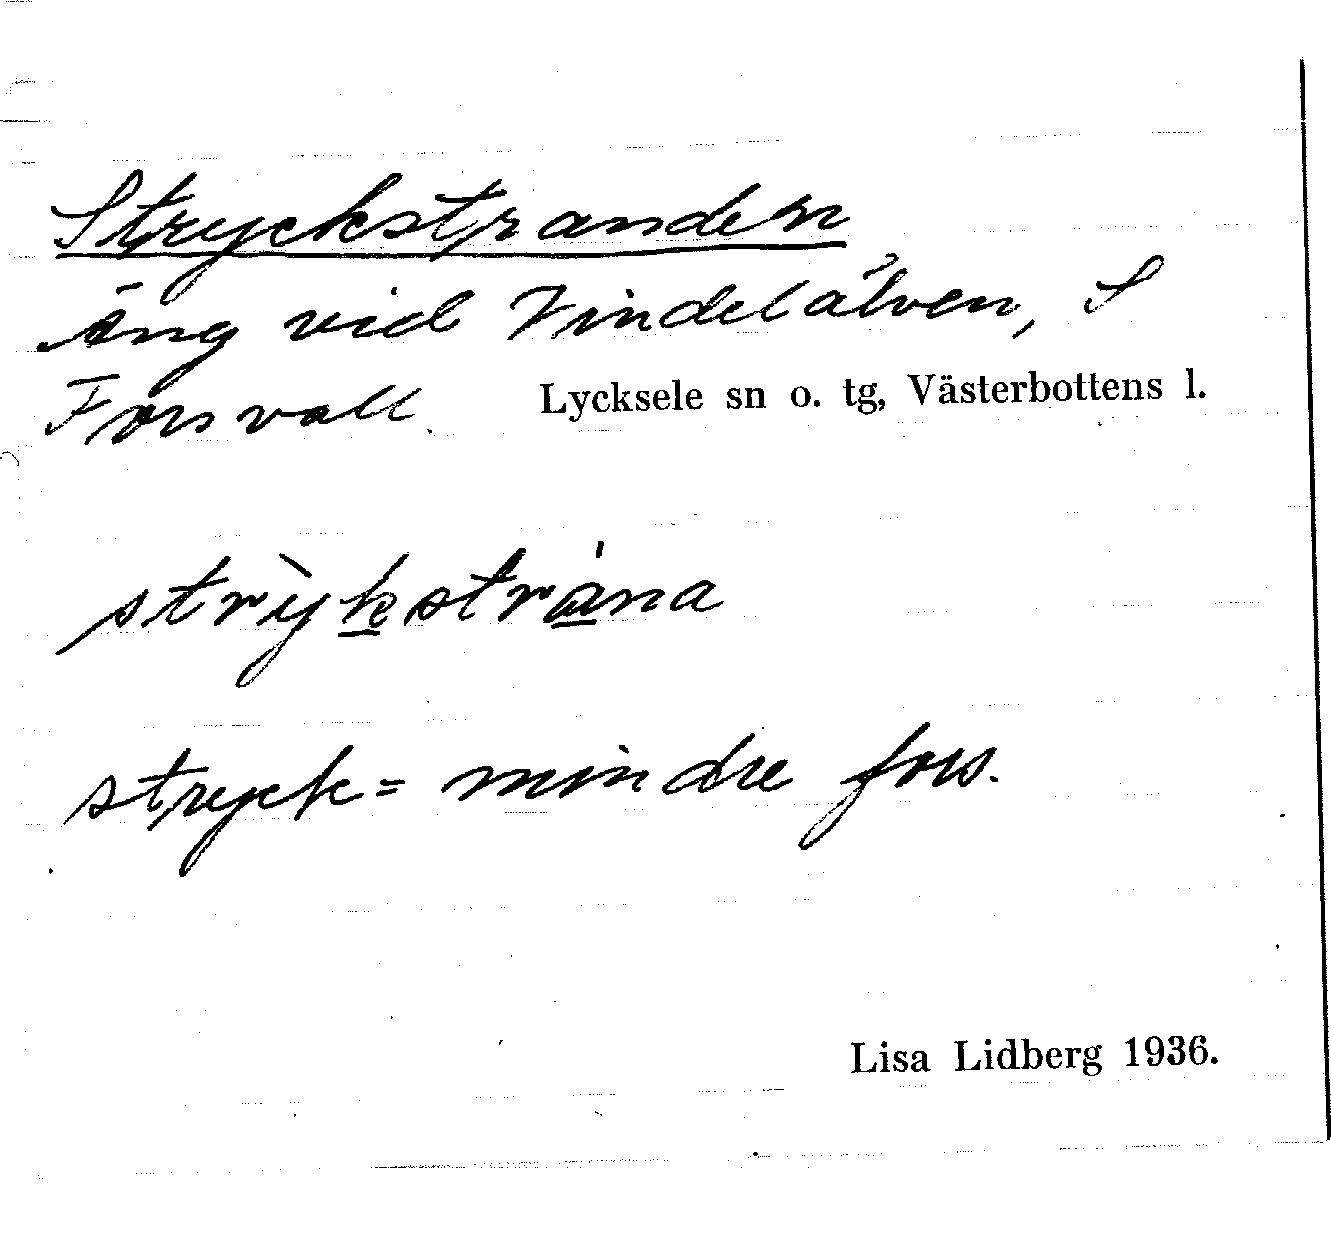 Stryckstranden
Äng vid Vindelälven, S
Forsvall Lycksele sn o. tg, Västerbottens l.
strỳkstrána
stryck = mindre fors.
Lisa Lidberg 1936.